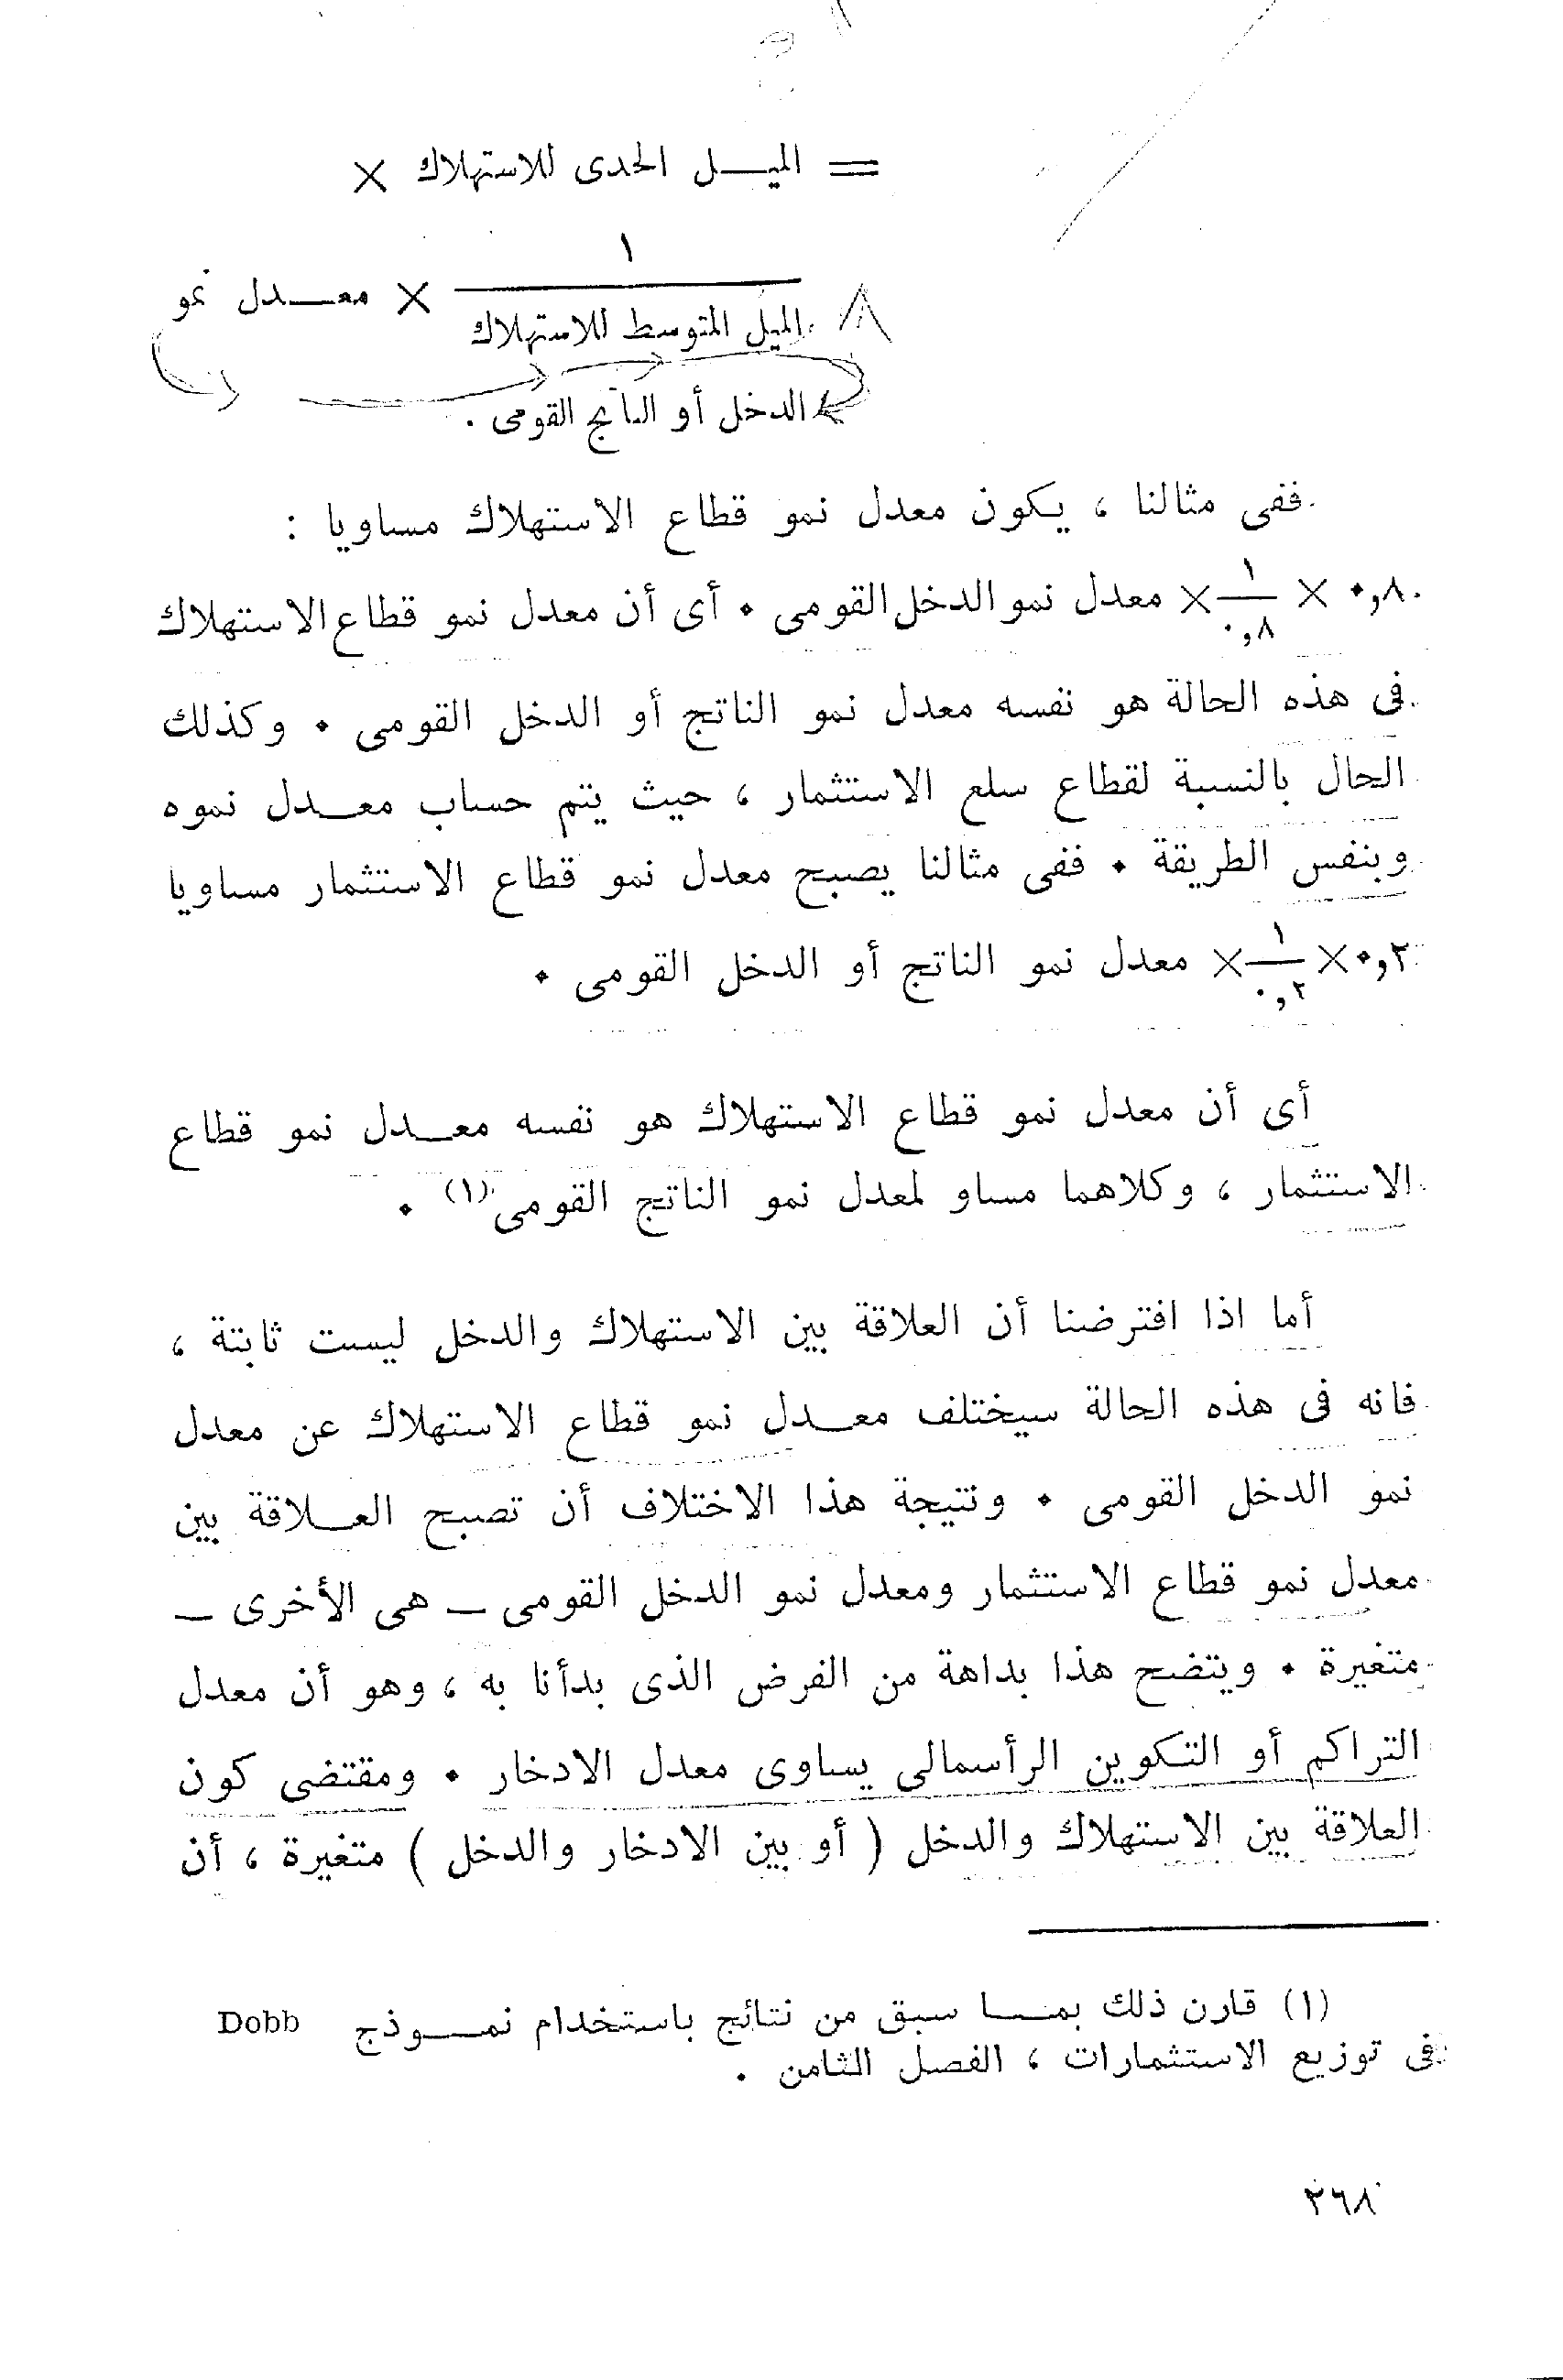 = الميــل الحدى للاستهلاك ×
١
ــــــــــــــــــــــــــــ × معــدل نمو
الميل المتوسط للاستهلاك
الدخل أو الناتج القومى .
ففى مثالنا ، يكون معدل نمو قطاع الاستهلاك مساويا :
٠,٨ × ١/٠,٨ × معدل نمو الدخل القومى . أى أن معدل نمو قطاع الاستهلاك
فى هذه الحالة هو نفسه معدل نمو الناتج أو الدخل القومى . وكذلك
الحال بالنسبة لقطاع سلع الاستثمار ، حيث يتم حساب معــدل نموه
وبنفس الطريقة . ففى مثالنا يصبح معدل نمو قطاع الاستثمار مساويا
٠,٢ × ١/٠,٢ × معدل نمو الناتج أو الدخل القومى .
أى أن معدل نمو قطاع الاستهلاك هو نفسه معــدل نمو قطاع
الاستثمار ، وكلاهما مساو لمعدل نمو الناتج القومى(١) .
أما اذا افترضنا أن العلاقة بين الاستهلاك والدخل ليست ثابتة ،
فانه فى هذه الحالة سيختلف معــدل نمو قطاع الاستهلاك عن معدل
نمو الدخل القومى . ونتيجة هذا الاختلاف أن تصبح العــلاقة بين
معدل نمو قطاع الاستثمار ومعدل نمو الدخل القومى – هى الأخرى –
متغيرة . ويتضح هذا بداهة من الفرض الذى بدأنا به ، وهو أن معدل
التراكم أو التكوين الرأسمالى يساوى معدل الادخار . ومقتضى كون
العلاقة بين الاستهلاك والدخل ( أو بين الادخار والدخل ) متغيرة ، أن
(١) قارن ذلك بمــا سبق من نتائج باستخدام نمــوذج Dobb
فى توزيع الاستثمارات ، الفصل الثامن .
٢٦٨